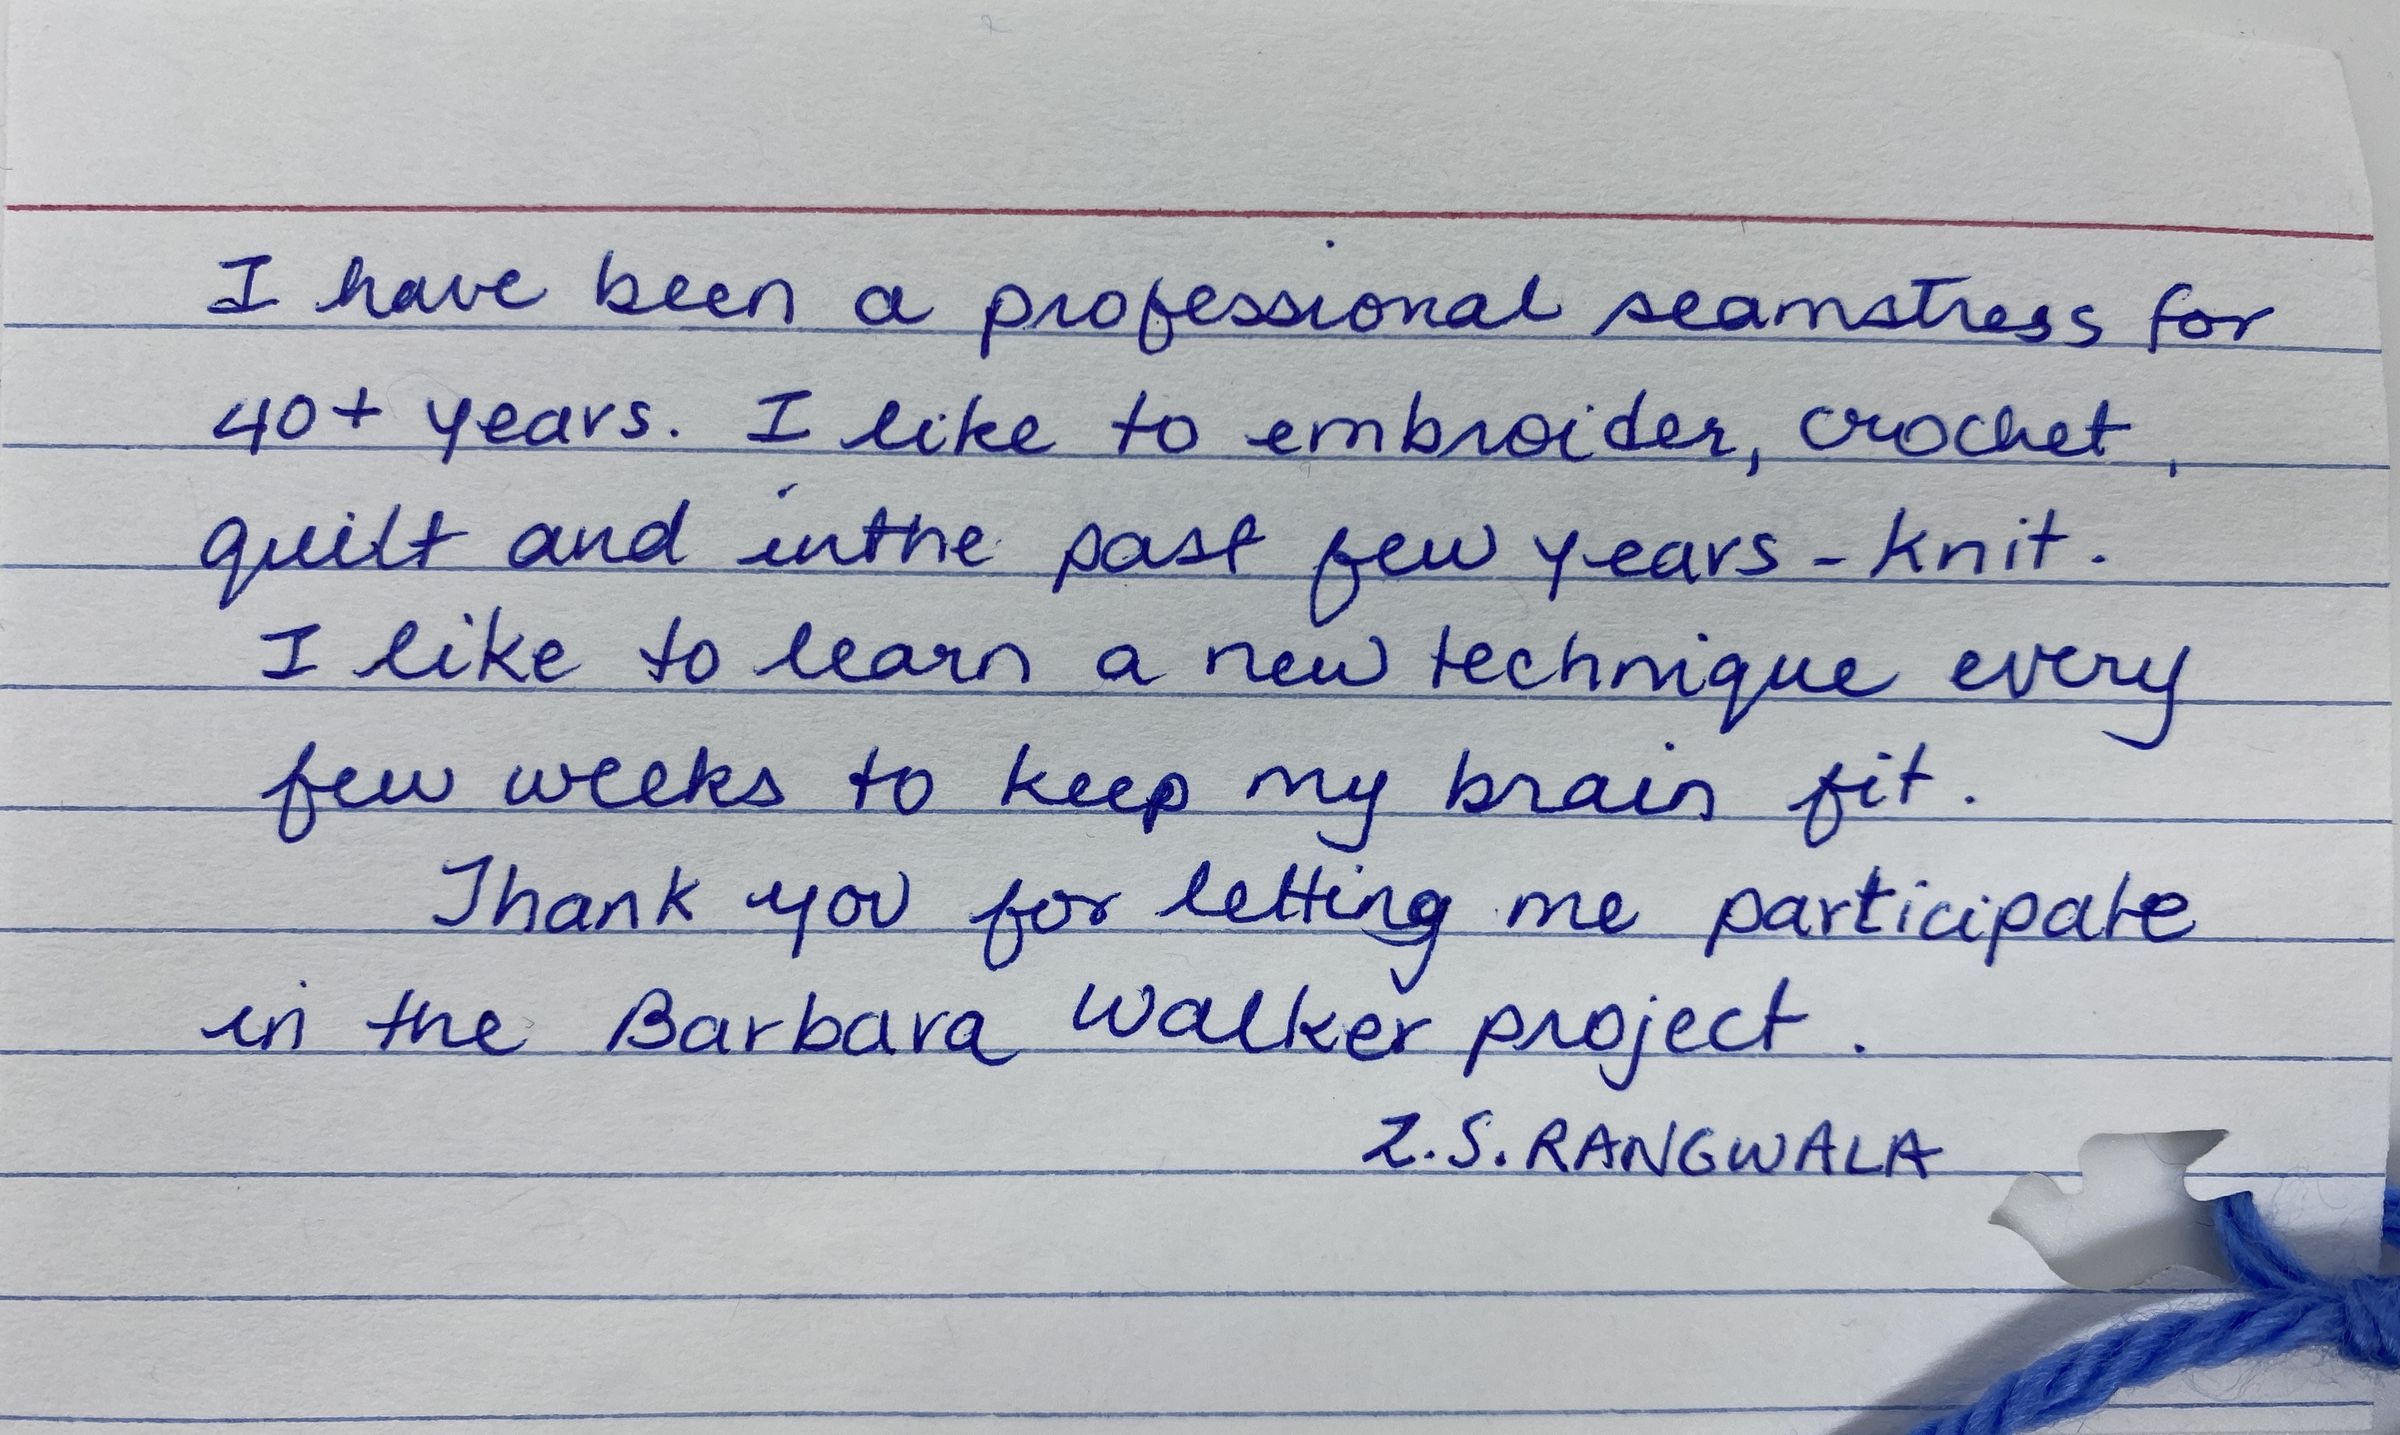 I have been a professional seamstress for
40+ years. I like to embroider, crochet,
quilt and inthe past few years - knit.
I like to learn a new technique every
few weeks to keep my brain fit.
Thank you for letting me participate
in the Barbara Walker project.
Z.S. RANGWALA